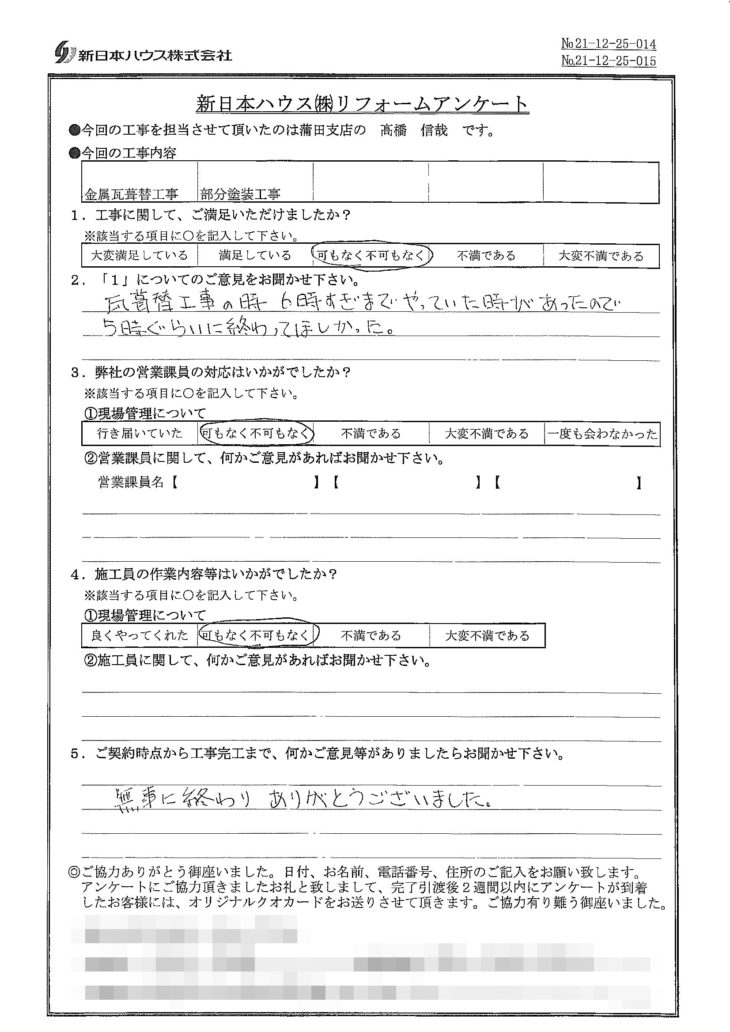 新日本ハウス株式会社
№21-12-25-014
№21-12-25-015
新日本ハウス㈱リフォームアンケート
●今回の工事を担当させて頂いたのは蒲田支店の 髙橋 信哉 です。
●今回の工事内容
金属瓦葺替工事 部分塗装工事
1．工事に関して、ご満足いただけましたか？
※該当する項目に○を記入して下さい。
大変満足している 満足している 可もなく不可もなく 不満である 大変不満である
2．「1」についてのご意見をお聞かせ下さい。
瓦葺替工事の時 6時すぎまでやっていた時があったので
5時ぐらいに終わってほしかった。
3．弊社の営業課員の対応はいかがでしたか？
※該当する項目に○を記入して下さい。
①現場管理について
行き届いていた 可もなく不可もなく 不満である 大変不満である 一度も会わなかった
②営業課員に関して、何かご意見があればお聞かせ下さい。
営業課員名【 】【 】【 】
4．施工員の作業内容等はいかがでしたか？
※該当する項目に○を記入して下さい。
①現場管理について
良くやってくれた 可もなく不可もなく 不満である 大変不満である
②施工員に関して、何かご意見があればお聞かせ下さい。
5．ご契約時点から工事完工まで、何かご意見等がありましたらお聞かせ下さい。
無事に終わり ありがとうございました。
◎ご協力ありがとう御座いました。日付、お名前、電話番号、住所のご記入をお願い致します。
アンケートにご協力頂きましたお礼と致しまして、完了引渡後2週間以内にアンケートが到着
したお客様には、オリジナルクオカードをお送りさせて頂きます。ご協力有り難う御座いました。